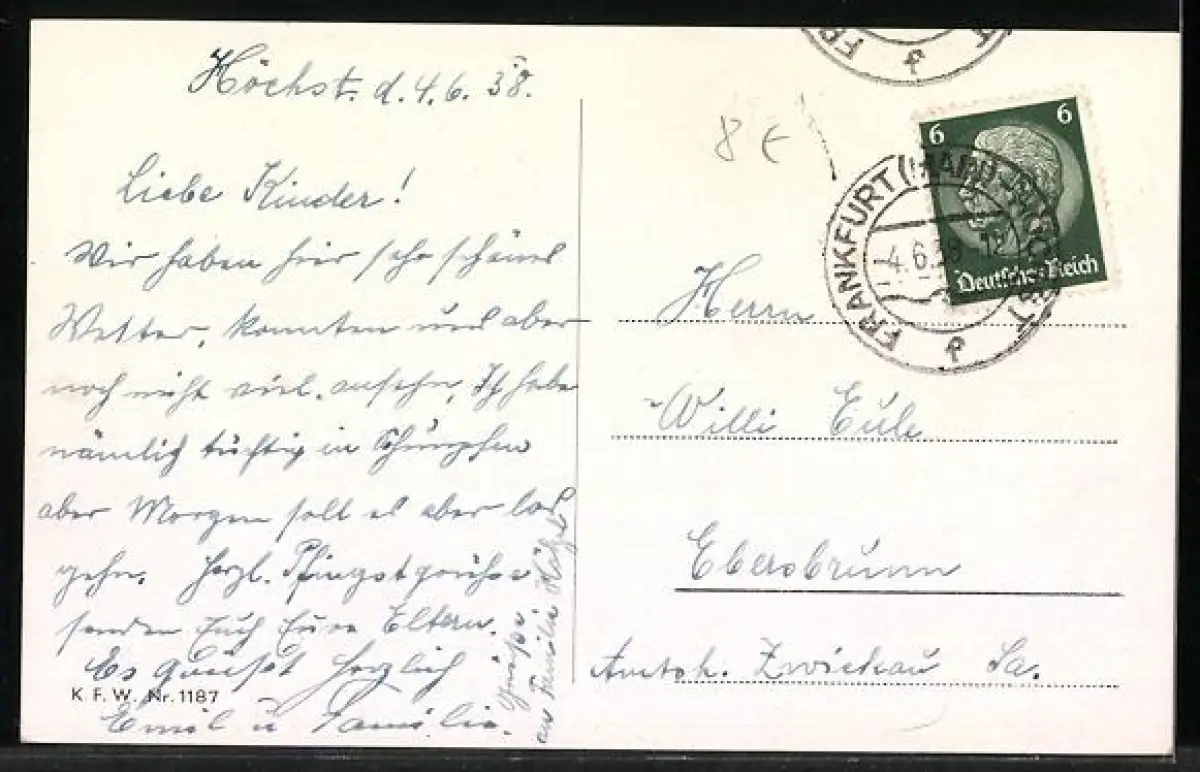 Höchst. d. 4.6.38.
Liebe Kinder!
Wir haben hier sehr schönes
Wetter, konnten uns aber
noch nicht viel ansehn, Ich habe
nämlich tüchtig in
aber Morgen soll es aber los
gehn. Herzl. Pfingstgrüße
senden Euch Eure Eltern.
Es grüßt herzlich
Emil u Familie.
Grüße
an Familie
K F. W. Nr. 1187
8 €
6 6
Deutsches Reich
FRANKFURT (MAIN)-HÖCHST
4.6.38
f
FR T
f
Herrn
Willi Eule
Ebersbrunn
Amtsh. Zwickau Sa.